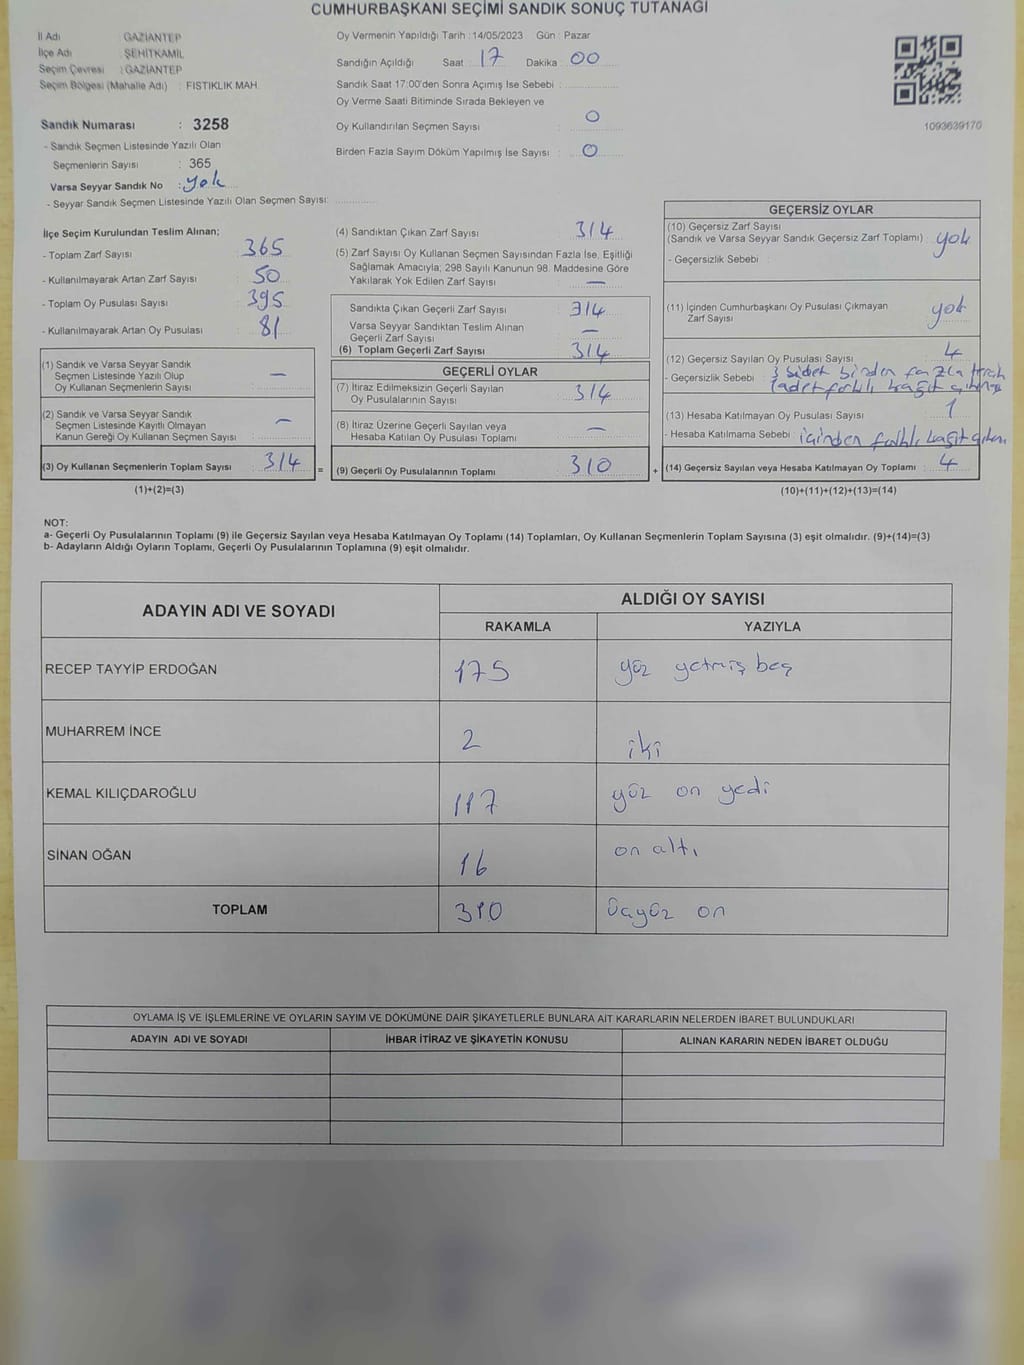 CUMHURBAŞKANI SEÇİMİ SANDIK SONUÇ TUTANAĞI
İl Adı : GAZİANTEP
İlçe Adı : ŞEHİTKAMİL
Seçim Çevresi : GAZİANTEP
Seçim Bölgesi (Mahalle Adı) : FISTIKLIK MAH.
Sandık Numarası : 3258
- Sandık Seçmen Listesinde Yazılı Olan
Seçmenlerin Sayısı : 365
Varsa Seyyar Sandık No : yok
- Seyyar Sandık Seçmen Listesinde Yazılı Olan Seçmen Sayısı:
Oy Vermenin Yapıldığı Tarih :14/05/2023 Gün : Pazar
Sandığın Açıldığı Saat 17 Dakika 00
Sandık Saat 17:00'den Sonra Açımış İse Sebebi :
Oy Verme Saati Bitiminde Sırada Bekleyen ve
Oy Kullandırılan Seçmen Sayısı : 0
Birden Fazla Sayım Döküm Yapılmış İse Sayısı : 0
1093639170
İlçe Seçim Kurulundan Teslim Alınan;
- Toplam Zarf Sayısı : 365
- Kullanılmayarak Artan Zarf Sayısı : 50
- Toplam Oy Pusulası Sayısı : 395
- Kullanılmayarak Artan Oy Pusulası : 81
(1) Sandık ve Varsa Seyyar Sandık
Seçmen Listesinde Yazılı Olup
Oy Kullanan Seçmenlerin Sayısı : —
(2) Sandık ve Varsa Seyyar Sandık
Seçmen Listesinde Kayıtlı Olmayan
Kanun Gereği Oy Kullanan Seçmen Sayısı : —
(3) Oy Kullanan Seçmenlerin Toplam Sayısı : 314 =
(1)+(2)=(3)
(4) Sandıktan Çıkan Zarf Sayısı : 314
(5) Zarf Sayısı Oy Kullanan Seçmen Sayısından Fazla İse, Eşitliği
Sağlamak Amacıyla; 298 Sayılı Kanunun 98. Maddesine Göre
Yakılarak Yok Edilen Zarf Sayısı : —
Sandıkta Çıkan Geçerli Zarf Sayısı : 314
Varsa Seyyar Sandıktan Teslim Alınan
Geçerli Zarf Sayısı : —
(6) Toplam Geçerli Zarf Sayısı : 314
GEÇERLİ OYLAR
(7) İtiraz Edilmeksizin Geçerli Sayılan
Oy Pusulalarının Sayısı : 314
(8) İtiraz Üzerine Geçerli Sayılan veya
Hesaba Katılan Oy Pusulası Toplamı : —
(9) Geçerli Oy Pusulalarının Toplamı : 310 +
GEÇERSİZ OYLAR
(10) Geçersiz Zarf Sayısı
(Sandık ve Varsa Seyyar Sandık Geçersiz Zarf Toplamı) : yok
- Geçersizlik Sebebi :
(11) İçinden Cumhurbaşkanı Oy Pusulası Çıkmayan
Zarf Sayısı : yok
(12) Geçersiz Sayılan Oy Pusulası Sayısı : 4
- Geçersizlik Sebebi : 3 birden fazla
1 adet farklı kağıt
(13) Hesaba Katılmayan Oy Pusulası Sayısı : 1
- Hesaba Katılmama Sebebi : içinden farklı kağıt çıkan
(14) Geçersiz Sayılan veya Hesaba Katılmayan Oy Toplamı : 4
(10)+(11)+(12)+(13)=(14)
NOT:
a- Geçerli Oy Pusulalarının Toplamı (9) ile Geçersiz Sayılan veya Hesaba Katılmayan Oy Toplamı (14) Toplamları, Oy Kullanan Seçmenlerin Toplam Sayısına (3) eşit olmalıdır. (9)+(14)=(3)
b- Adayların Aldığı Oyların Toplamı, Geçerli Oy Pusulalarının Toplamına (9) eşit olmalıdır.
ADAYIN ADI VE SOYADI
ALDIĞI OY SAYISI
RAKAMLA YAZIYLA
RECEP TAYYİP ERDOĞAN 175 yüz yetmiş beş
MUHARREM İNCE 2 iki
KEMAL KILIÇDAROĞLU 117 yüz on yedi
SİNAN OĞAN 16 on altı
TOPLAM 310 üçyüz on
OYLAMA İŞ VE İŞLEMLERİNE VE OYLARIN SAYIM VE DÖKÜMÜNE DAİR ŞİKAYETLERLE BUNLARA AİT KARARLARIN NELERDEN İBARET BULUNDUKLARI
ADAYIN ADI VE SOYADI İHBAR İTİRAZ VE ŞİKAYETİN KONUSU ALINAN KARARIN NEDEN İBARET OLDUĞU